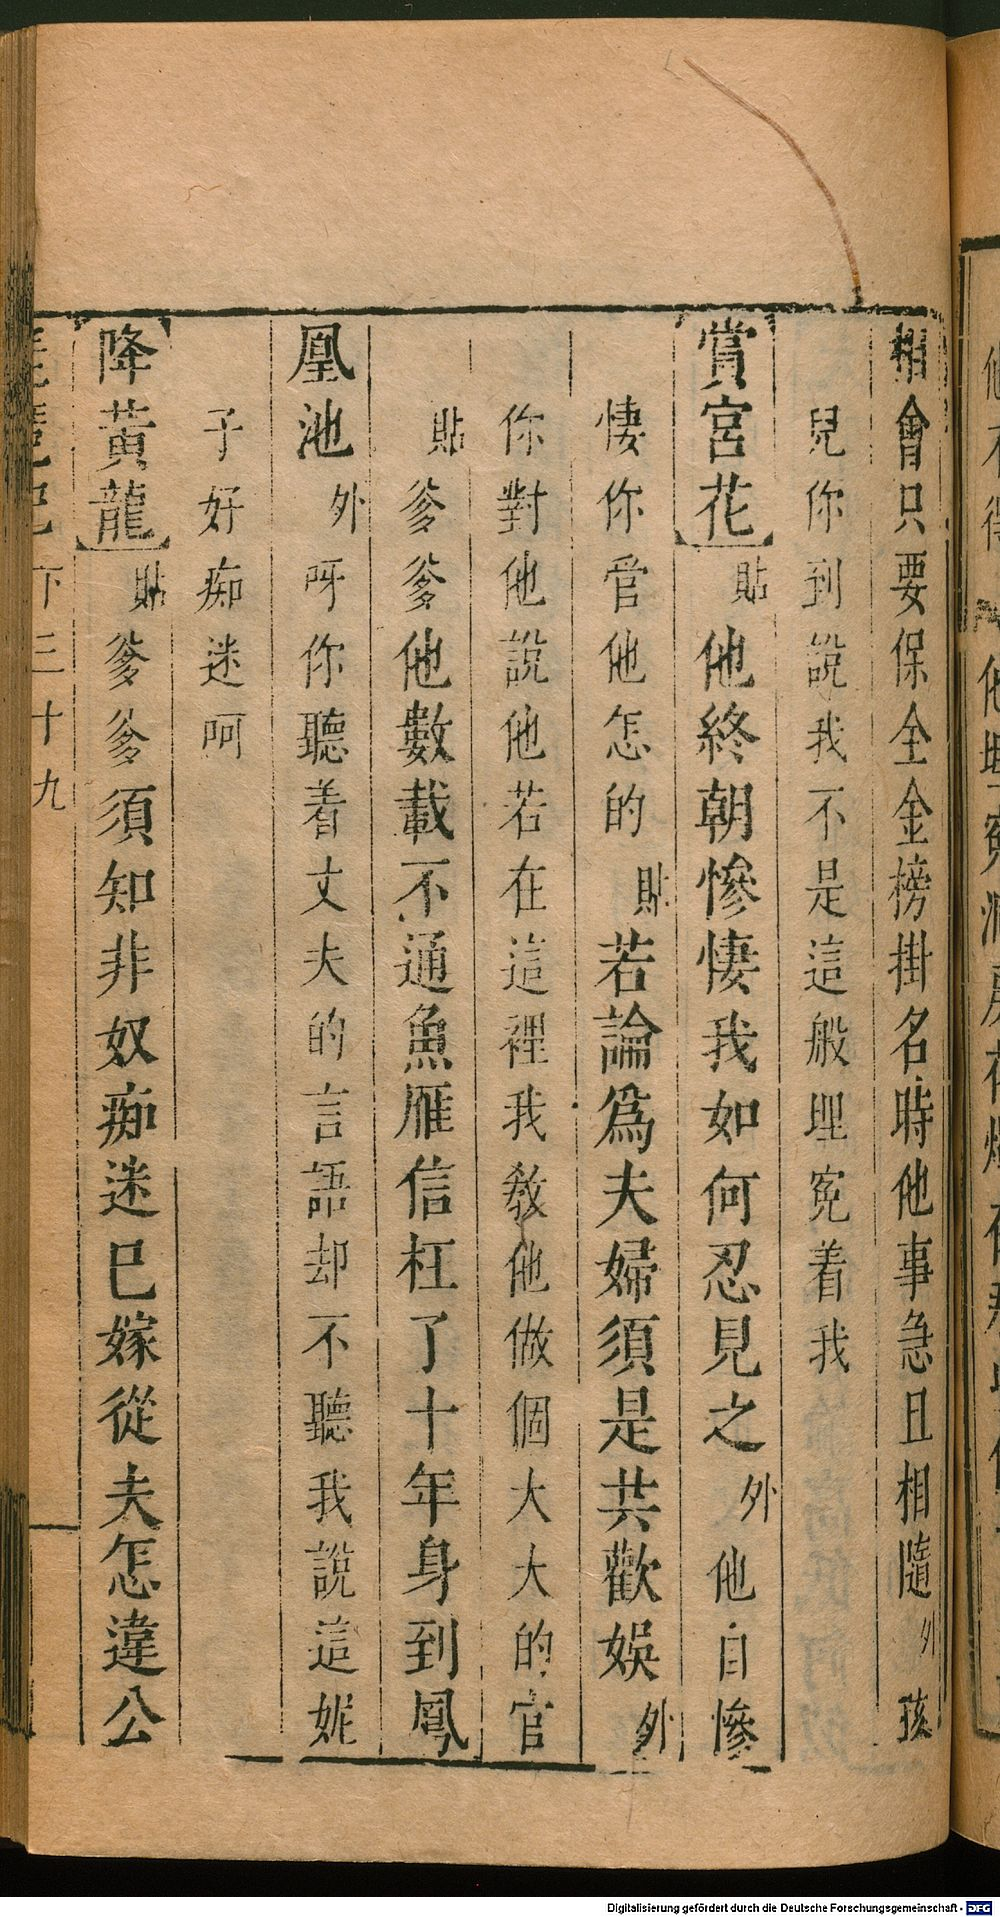 相會只要保全金榜掛名時他事急且相隨外孩
兒你到說我不是這般埋冤着我
賞宮花貼他終朝慘悽我如何忍見之外他自慘
悽你管他怎的貼若論爲夫婦須是共歡娛外
你對他說他若在這裡我教他做個大大的官
貼爹爹他數載不通魚雁信枉了十年身到鳳
凰池外呀你聽着丈夫的言語却不聽我說這妮
子好痴迷呵
降黃龍貼爹爹須知非奴痴迷已嫁從夫怎違公
琵琶記下三十九
Digitalisierung gefördert durch die Deutsche Forschungsgemeinschaft - DFG